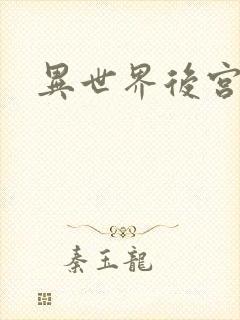 異世界後宮
秦玉龍